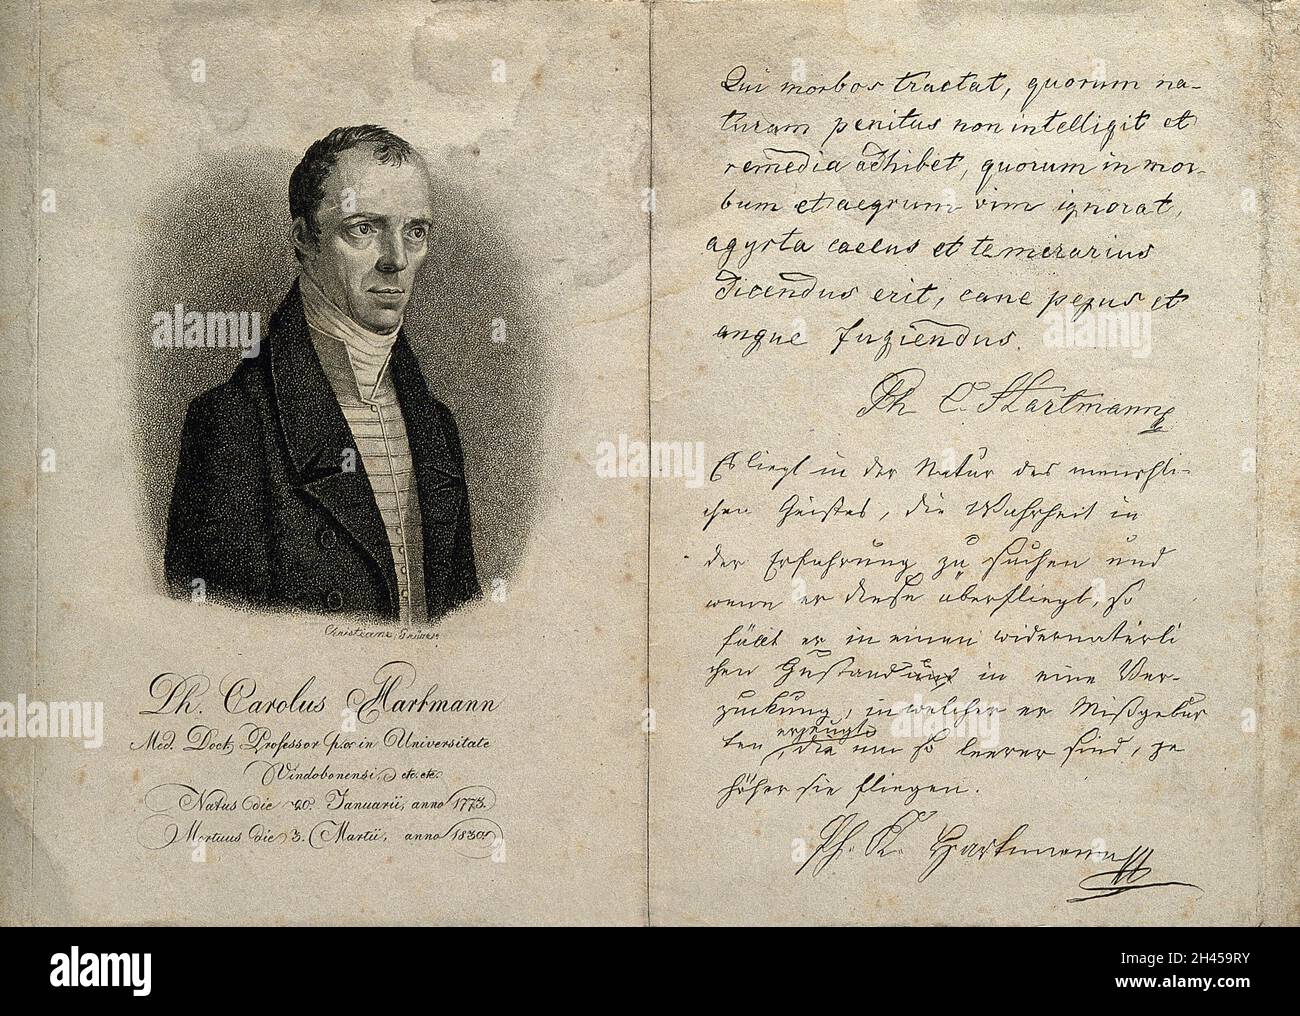 Christiane Grüner
Ph. Carolus Hartmann
Med. Doct. Professor p. o. in Universitate
Vindobonensi, etc. etc.
Natus die 20. Januarii, anno 1773.
Mortuus die 3. Martii, anno 1830.
Qui morbos tractat, quorum na-
turam penitus non intelligit et
remedia adhibet, quorum in mor-
bum et aegrum vim ignorat,
agyrta caecus et temerarius
dicendus erit, cane pejus et
angue fugiendus.
Ph C. Hartmann
Es liegt in der Natur des menschli-
chen Geistes, die Wahrheit in
der Erfahrung zu suchen und
wenn er diese überfliegt, so
fällt er in einen widernatürli
chen Zustand in eine Ver-
zuckung, in welcher er Mißgebur
ten erzeugt, die um so leerer sind, je
höher sie fliegen.
Ph. K. Hartmann
alamy
alamy
Image ID: 2H459RY
www.alamy.com